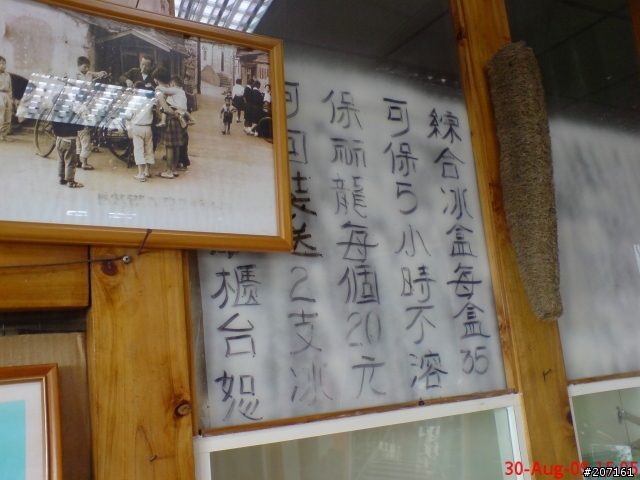 綜合冰盒每盒35
可保5小時不溶
保丽龍每個20元
可回裝送2支冰
櫃台恕
30-Aug-0
#207161